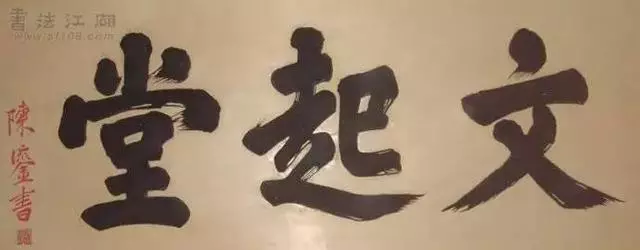 文起堂
陳鎏書
書法江湖
www.sf108.com